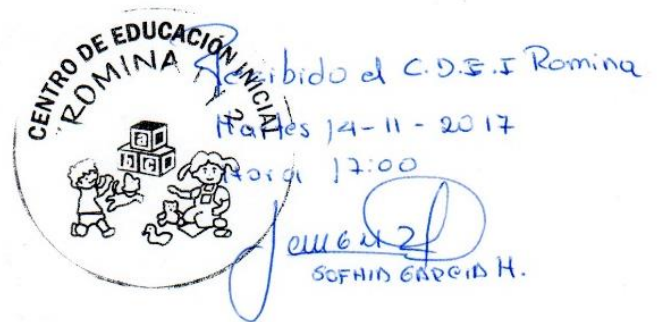 CENTRO DE EDUCACIÓN INICIAL
"ROMINA 1 Y 2"
a
b c
Recibido el C.D.E.I Romina
Martes 14-11-2017
Hora 17:00
SOFHIA GARCIA H.